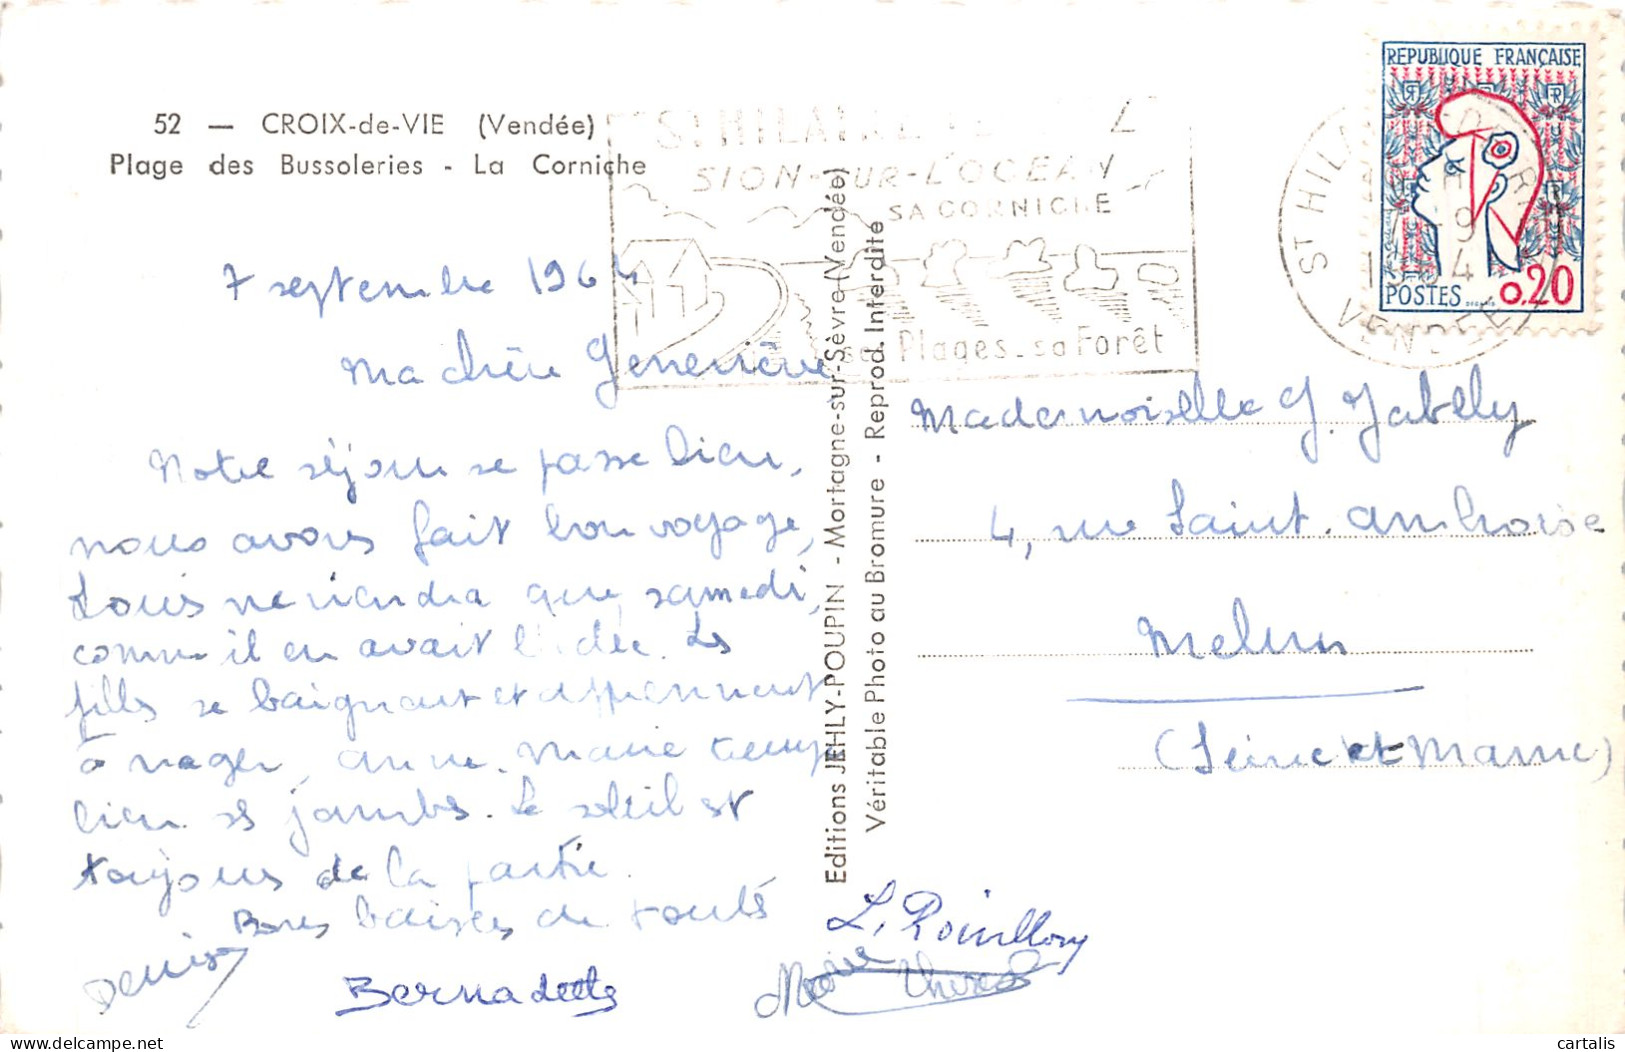 52 — CROIX-de-VIE (Vendée)
Plage des Bussoleries - La Corniche
7 septembre 1964
Ma chère Geneviève
Notre séjour se passe bien,
nous avons fait bon voyage,
Louis ne viendra que samedi,
comme il en avait l'idée. Les
filles se baignent et apprennent
à nager, Anne-Marie trempe
bien ses jambes. Le soleil est
toujours de la partie.
Bons baisers de toutes
Denise
Bernadette
Marie Thérèse
Editions JEHLY-POUPIN - Mortagne-sur-Sèvre (Vendée)
Véritable Photo au Bromure - Reprod. Interdite
ST HILAIRE
SION-SUR-L'OCEAN
SA CORNICHE
Plages _ sa Forêt
ST HILAIRE
VENDEE
REPUBLIQUE FRANÇAISE
RF
RF
POSTES
0,20
Mademoiselle G. Jabely
4, rue Saint-Ambroise
Melun
(Seine et Marne)
cartalis
Delcampe.net